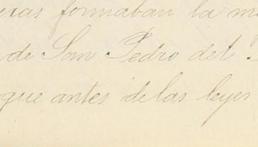 formaban la
de San Pedro del
que antes de las leyes